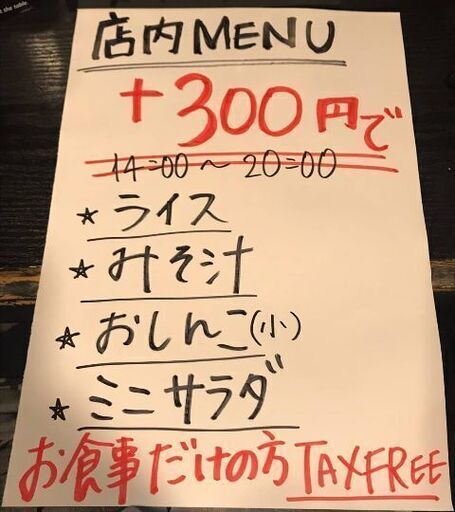 店内MENU
+300円で
14:00～20:00
☆ライス
☆みそ汁
☆おしんこ(小)
☆ミニサラダ
お食事だけの方TAXFREE